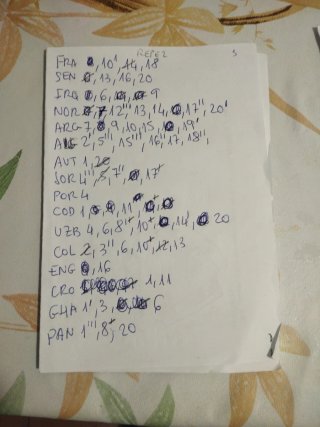 REPE2 5
FRA 10', 14, 18
SEN 13, 16, 20
IRQ 6, 9
NOR 7, 12''', 13, 14, 17'', 20'
ARG 7, 9, 10, 15, 19'
ALG 2', 5'', 15''', 16'', 17, 18'',
AUT 1, 20
JOR 4''', 5, 7'', 17+
POR 4
COD 1, 11
UZB 4, 6, 8'', 10+, 14', 20
COL 2, 3'', 6, 10+, 12, 13
ENG 16
CRO 1, 11
GHA 1', 3, 6
PAN 1''', 8+, 20